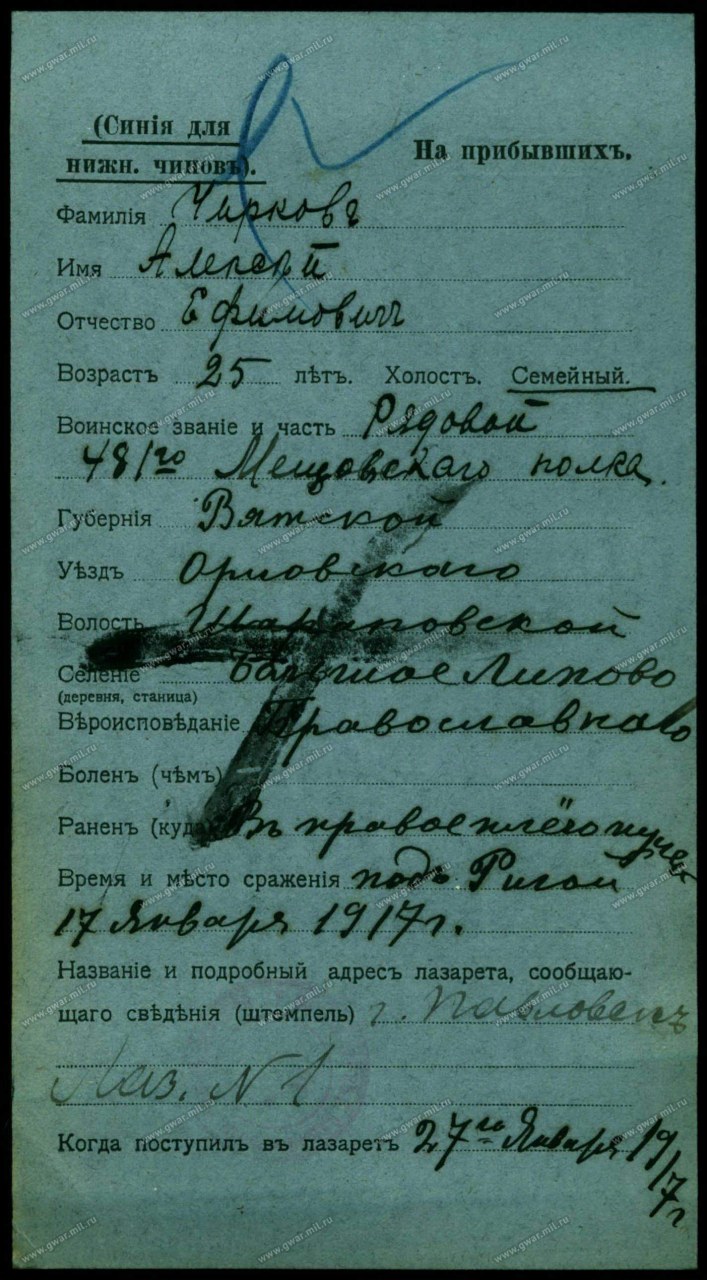 (Синія для
нижн. чиновъ).
На прибывшихъ.
Фамилія Чирковъ
Имя Алексѣй
Отчество Ефимовичъ
Возрастъ 25 лѣтъ. Холостъ. Семейный.
Воинское званіе и часть Рядовой
481го Мещовскаго полка.
Губернія Вятской
Уѣздъ Орловскаго
Волость Шараповской
Селеніе Большое Липово
(деревня, станица)
Вѣроисповѣданіе Православнаго
Боленъ (чѣмъ) —
Раненъ (куда) Въ правое плечо пулей
Время и мѣсто сраженія подъ Ригой
17 Января 1917 г.
Названіе и подробный адресъ лазарета, сообщаю-
щаго свѣдѣнія (штемпель) г. Павловскъ
Лаз. N 1
Когда поступилъ въ лазаретъ 27го Января 19/17 г
www.gwar.mil.ru